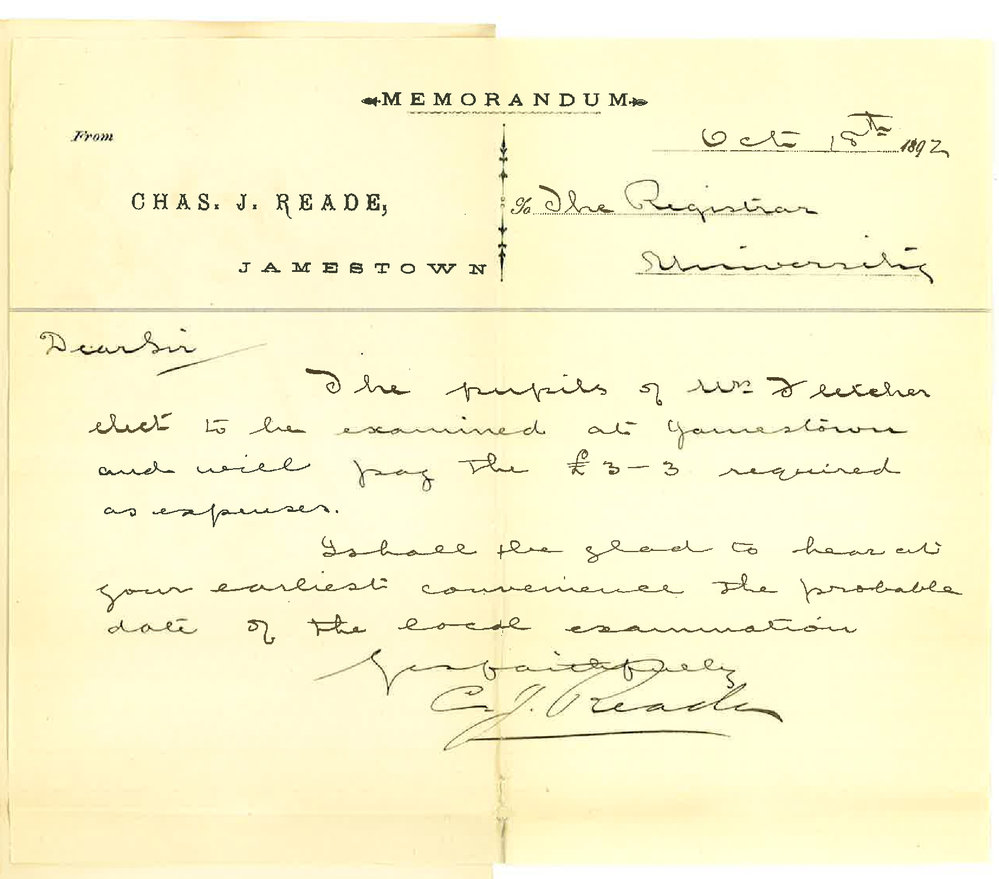 MEMORANDUM
From
Oct 18th 1892
CHAS. J. READE,
To The Registrar
JAMESTOWN
University
Dear Sir
The pupils of Mrs Fletcher
elect to be examined at Jamestown
and will pay the £3-3 required
as expenses.
I shall be glad to hear at
your earliest convenience the probable
date of the local examination
Yrs faithfully
C. J. Reade